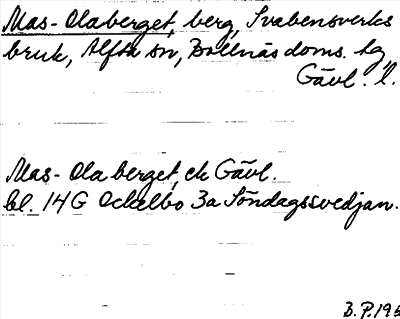 Mas-Olaberget, berg, Svabensverks
bruk, Alfta sn, Bollnäs doms. hg,
Gävl. l.
Mas-Olaberget, ek Gävl.
bl. 14G Ockelbo 3a Söndagssvedjan.
B.P.195